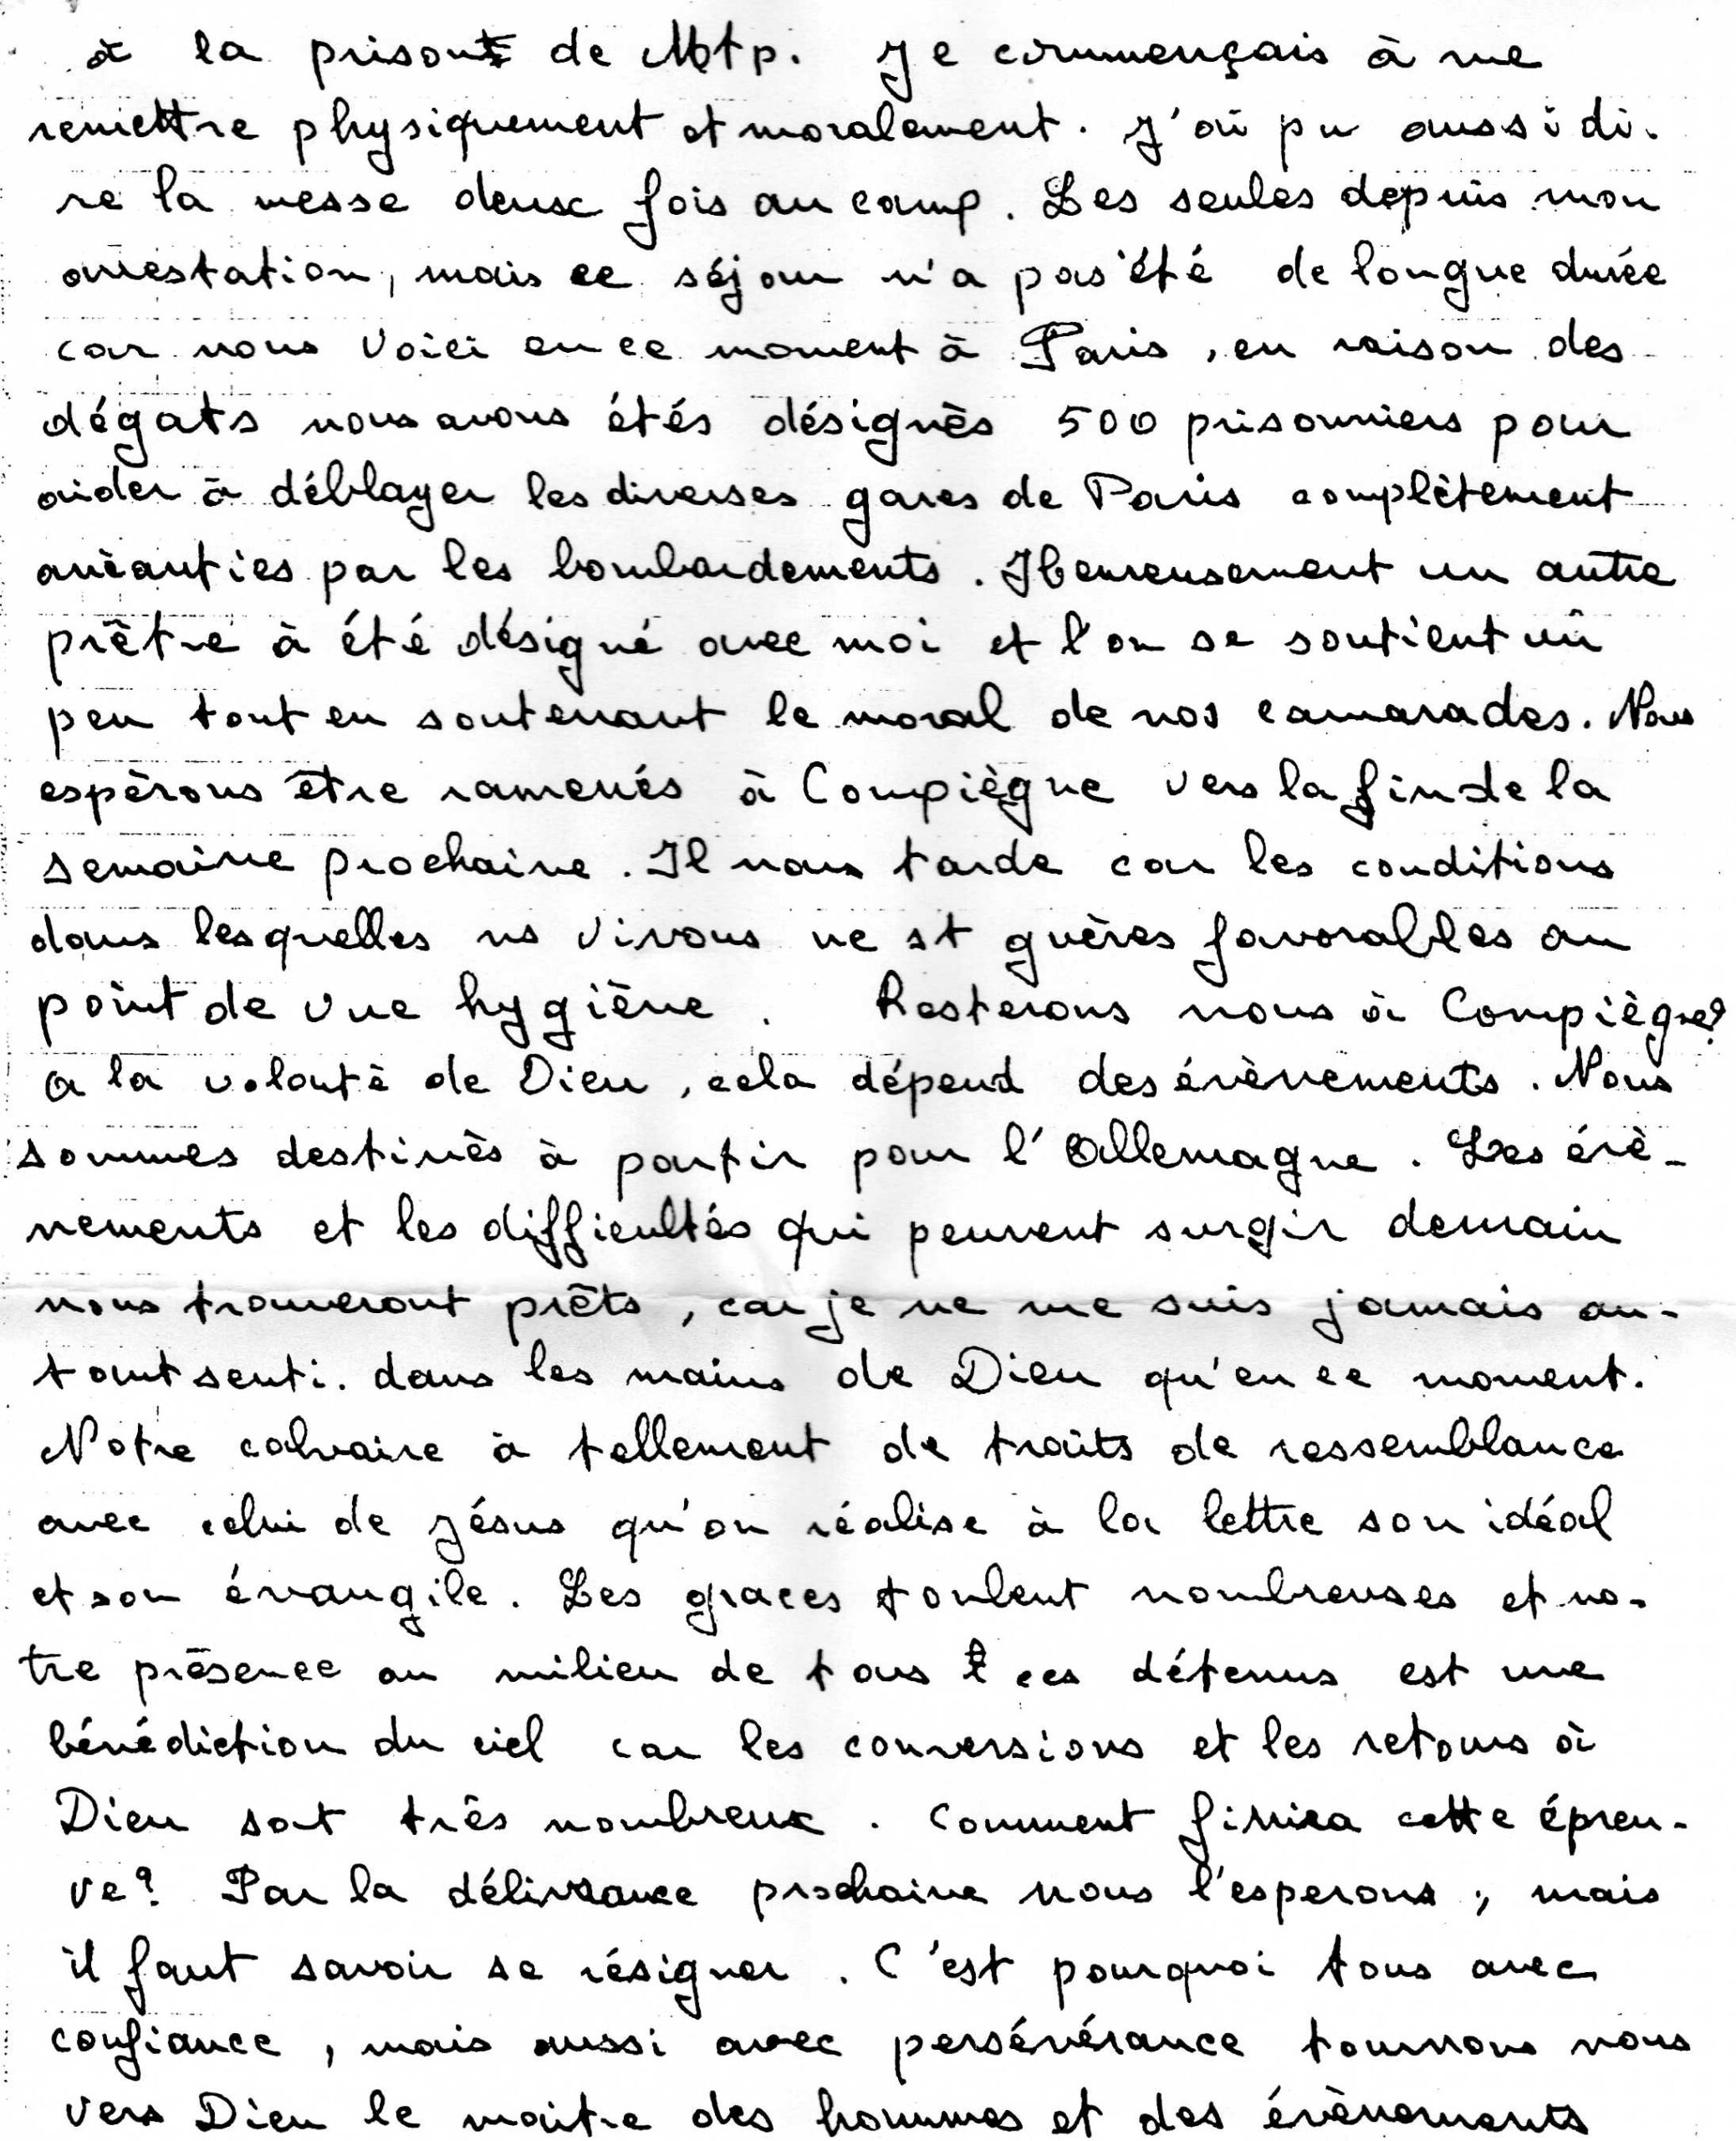 à la prison de Mtp. Je commençais à me
remettre physiquement et moralement. J'ai pu aussi di-
re la messe deux fois au camp. Les seules depuis mon
arrestation, mais ce séjour n'a pas été de longue durée
car nous voici en ce moment à Paris, en raison des
dégats nous avons étés désignès 500 prisonniers pour
aider à déblayer les diverses gares de Paris complètement
anèanties par les bombardements. Heureusement un autre
prêtre à été désigné avec moi et l'on se soutient un
peu tout en soutenant le moral de nos camarades. Nous
espèrons être ramenés à Compiègne vers la fin de la
semaine prochaine. Il nous tarde car les conditions
dans lesquelles ns vivons ne st guères favorables au
point de vue hygiène. Resterons nous à Compiègne?
a la volontè de Dieu, cela dépend des évènements. Nous
sommes destinès à partir pour l'Allemagne. Les évè-
nements et les difficultés qui peuvent surgir demain
nous trouveront prêts, car je ne me suis jamais au-
tant senti. dans les mains de Dieu qu'en ce moment.
Notre calvaire à tellement de traits de ressemblance
avec celui de Jésus qu'on réalise à la lettre son idéal
et son évangile. Les graces tonbent nombreuses et no-
tre présence au milieu de tous ces détenus est une
bénédiction du ciel car les conversions et les retours à
Dieu sont très nombreux. Comment finira cette épreu-
ve? Par la délivrance prochaine nous l'esperons, mais
il faut savoir se résigner. C'est pourquoi tous avec
confiance, mais aussi avec persévérance tournons nous
vers Dieu le maitre des hommes et des évènements